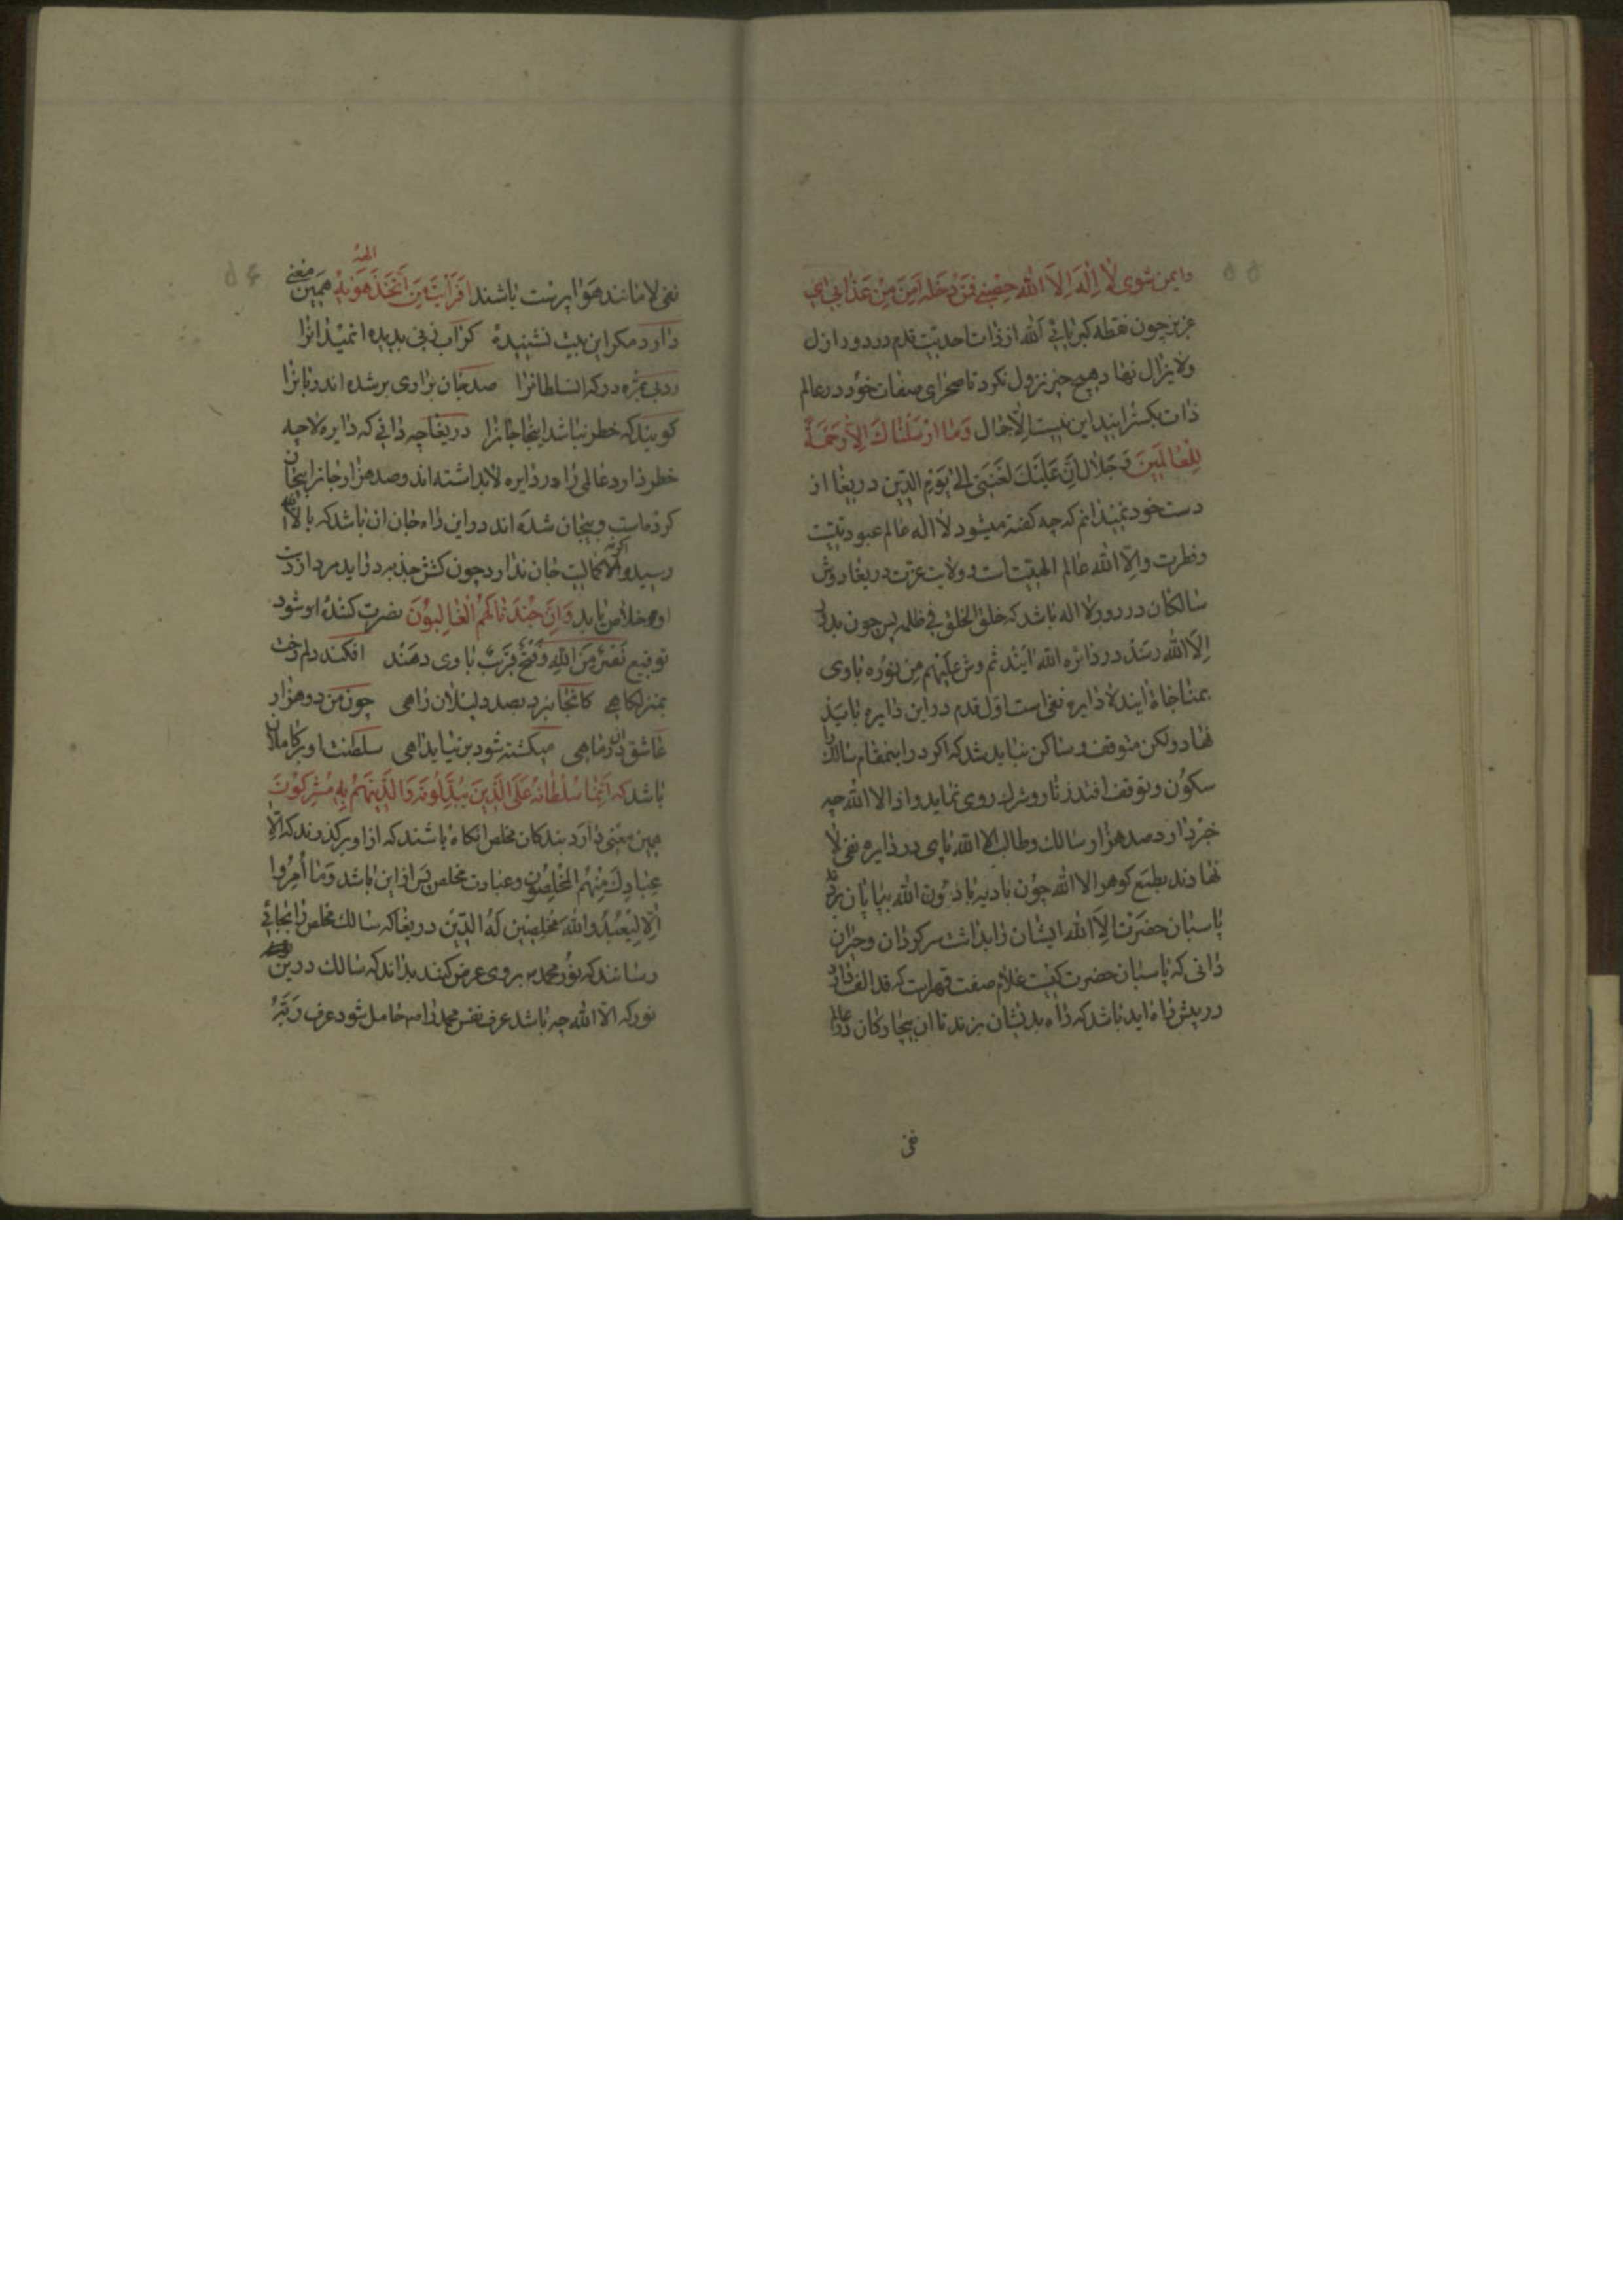 وایمن شوی لا اله الا الله حصنی فمن دخله امن من عذابی ای
عزیز چون نقطه کبریائی الله از ذات احدیت قدم در دور ازل
ولایزال نهاد هیچ چیز نزول نکرد تا صحرای صفات خود در عالم
ذات بکسترانید این نیست الا جمال وَمَا اَرْسَلْنَاكَ اِلَّا رَحْمَةً
لِلْعَالَمِینَ و جلال اِنَّ عَلَیْكَ لَعْنَتِی اِلیٰ یَوْمِ الدِّین دریغا از
دست خود نمیدانم که چه کفته میشود لا اله عالم عبودیتیت
و فطرت والا الله عالم الهیتیت است و ولایت عزت دریغا روش
سالکان در دور لا اله باشد که خلق الخلق فی ظلمه پس چون بدور
الا الله رسند در دائره الله ایند ثم رش علیهم من نوره با وی
بمناجاة ایند لا دایره نفی است اول قدم در این دایره باید
نهاد ولکن متوقف و ساکن نباید شد که اکر در اینمقام سالك را
سکون و توقف افتد زنار و شرك روی نماید و از الا الله چه
خبر دارد صد هزار سالك و طالب الا الله پای در دایره نفی لا
نهادند بطمع کوهر الا الله چون بادیه بادون الله بپایان
پاسبان حضرت الا الله ایشان را بداشت سرکردان و حیران
دانی که پاسبان حضرت کیست غلام صفت قهرست که قد الف دارد
در پیش راه اید باشد که راه بدیشان بزند تا ان بیچارکان در عالم
نفی
نفی لا مانند هوا پرست باشند اَفَرَاَیْتَ مَنِ اتَّخَذَ الهه هَوٰیهُ همین معنی
دارد مکر این بیت نشنیدۀ
صد جان
کویند که خطر نباشد اینجا جانرا دریغا چه دانی که دایره لا چه
خطر دارد عالمی را در دایره لا بداشته اند و صد هزار جانرا بیجان
کرده است و بیجان شده اند در این راه جان ان باشد که بالا الله
رسید و اکر نه کمالیت جان ندارد چون کشش جذبه در اید مرد از دست
او خلاص یابد وَاِنَّ جُنْدَنَا لَهُمُ الْغَالِبُوْنَ نصرت کنندۀ او شود
توقیع نَصْرٌ مِنَ اللهِ وَفَتْحٌ قَرِیْبٌ با وی دهند افکند دلم رخت
بمنزلکاهی کانجا نبرد بصد دلیلان راهی چون من دو هزار
عاشق در ماهی میکشته شود بر نیاید اهی سلطنت او بر کاملان
باشد که اِنَّمَا سُلْطَانُهُ عَلَی الَّذِینَ یَتَوَلَّوْنَهُ وَالَّذِینَ هُمْ بِهِ مُشْرِكُوْنَ
همین معنی دارد بندکان مخلص انکاه باشند که از او برکذرند که اِلَّا
عِبَادَكَ مِنْهُمُ المُخْلَصُون و عبادت مخلص پس از این باشد وَمَا اُمِرُوا
اِلَّا لِیَعْبُدُوا اللهَ مُخْلِصِینَ لَهُ الدِّینَ دریغا که سالك مخلص را بجائی
رسانند که نور محمد بر وی عرض کنند بداند که سالك در این
نور که الا الله چه باشد عرف نفس محمد را حاصل شود عرف رَبَّهُ